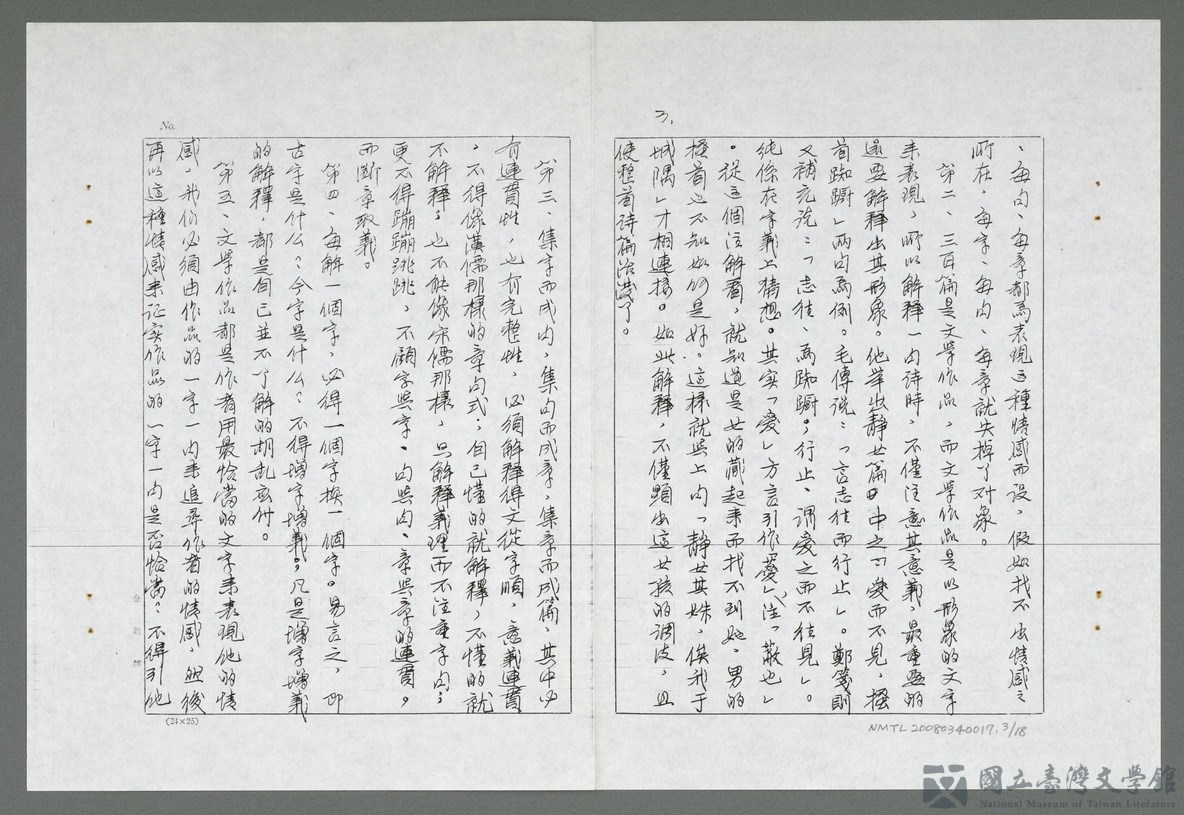 3.
、每句、每章都為表現這種情感而設,假如找不出情感之
所在,每字、每句、每章就失掉了对象。
第二、三百篇是文學作品,而文學作品是以形象的文字
來表現,所以解釋一句詩時,不僅注意其意義,最重要的
還要解釋出其形象。他舉出靜女篇中之「愛而不見,搔
首踟躕」兩句為例。毛傳說:「言志往而行止」。鄭箋則
又補充說:「志往、為踟躕;行止、謂愛之而不往見」。
純係在字義上猜想。其實「愛」方言引作「薆」,注「蔽也」
。從這個注解看,就知道是女的藏起來而找不到她,男的
搔首也不知如何是好。這樣就與上句「靜女其姝,俟我于
城隅」才相連接。如此解釋,不僅顯出這女孩的調皮,且
使整首詩篇活潑了。
No.
第三、集字而成句,集句而成章,集章而成篇,其中必
有連貫性,也有完整性,必須解釋得文從字順,意義連貫
,不得像漢儒那樣的章句式;自己懂的就解釋,不懂的就
不解釋;也不能像宋儒那樣,只解釋義理而不注重字句;
更不得蹦蹦跳跳,不顧字與字、句與句、章與章的連貫。
而斷章取義。
第四、每解一個字,必得一個字換一個字。易言之,即
古字是什么?今字是什么?不得增字增義。凡是增字增義
的解釋,都是自已並不了解的胡乱应付。
第五、文學作品都是作者用最恰當的文字來表現他的情
感,我们必須由作品的一字一句來追尋作者的情感,然後
再以這種情感來证实作品的一字一句是否恰當?不得引他
(24×25)
NMTL 20080340017, 3/18
國立臺灣文學館
National Museum of Taiwan Literature